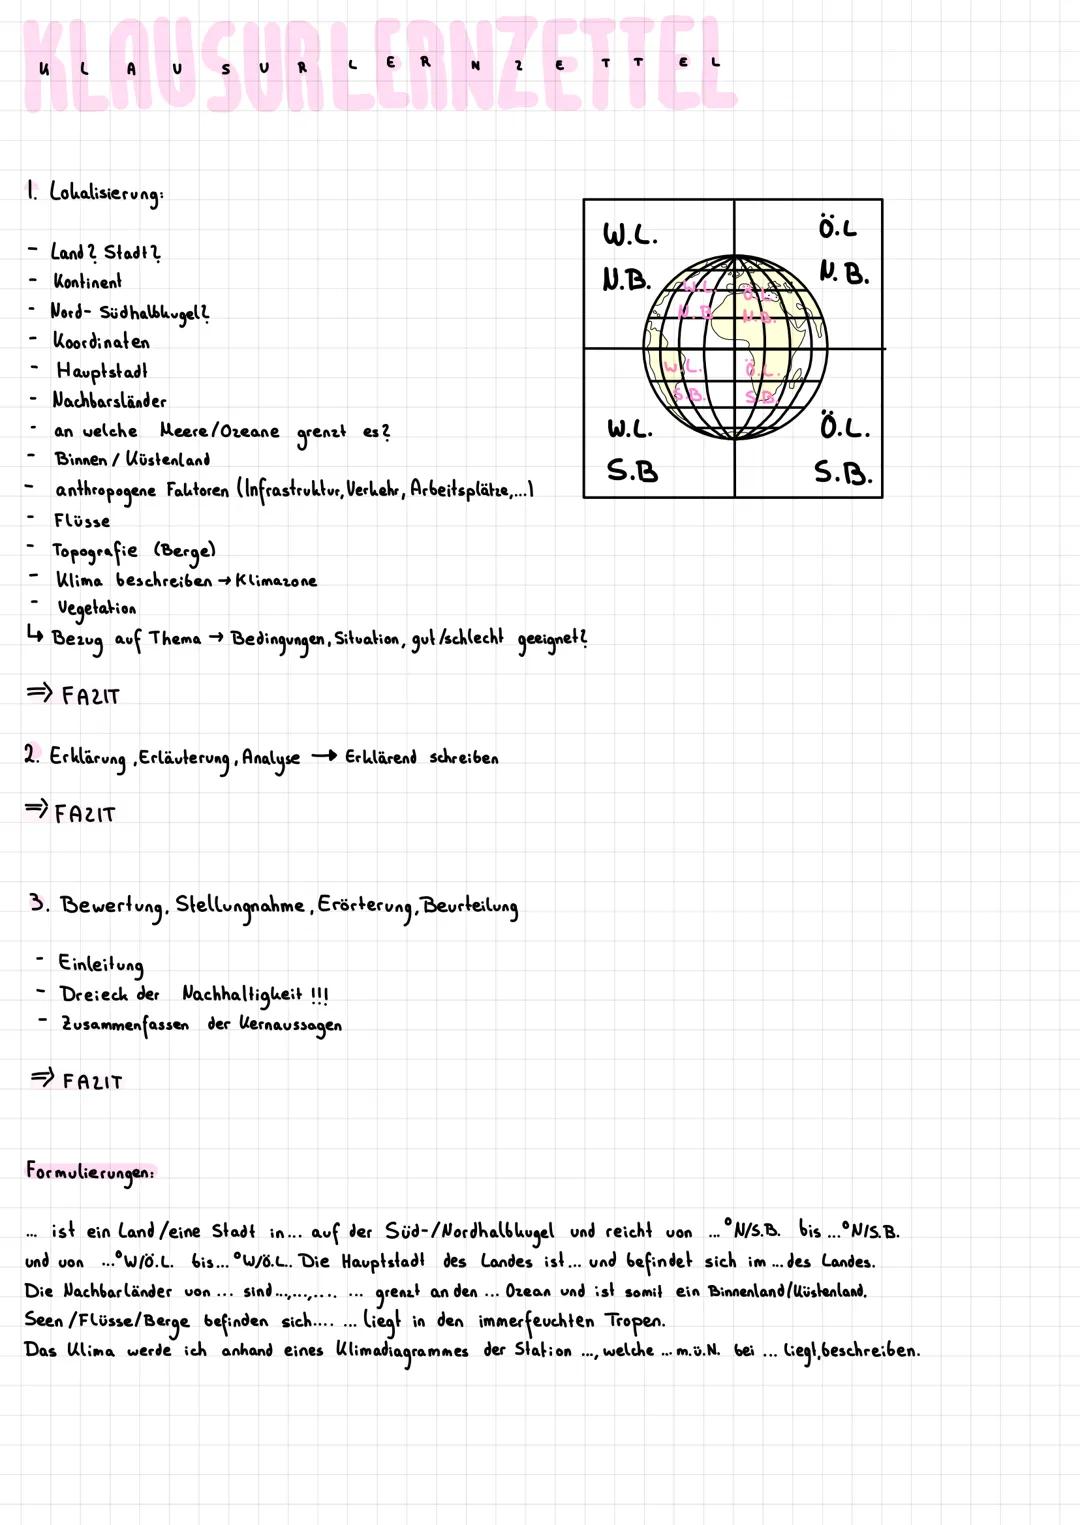 KLAUSURLERNZETTEL
KLAUSURLERNZETTEL
1. Lokalisierung:
- Land? Stadt?
- Kontinent
- Nord- Südhalbkugel?
- Koordinaten
- Hauptstadt
- Nachbarsländer
- an welche Meere/Ozeane grenzt es?
- Binnen / Küstenland
- anthropogene Faktoren (Infrastruktur, Verkehr, Arbeitsplätze,...)
- Flüsse
- Topografie (Berge)
- Klima beschreiben → Klimazone
- Vegetation
↳ Bezug auf Thema → Bedingungen, Situation, gut/schlecht geeignet?
⇒ FAZIT
W.L.
N.B.
Ö.L
N.B.
W.L.
N.B
Ö.L.
N.B.
W.L.
S.B.
Ö.L.
S.B.
W.L.
S.B
Ö.L.
S.B.
2. Erklärung, Erläuterung, Analyse → Erklärend schreiben
⇒ FAZIT
3. Bewertung, Stellungnahme, Erörterung, Beurteilung
- Einleitung
- Dreieck der Nachhaltigkeit !!!
- Zusammenfassen der Kernaussagen
⇒ FAZIT
Formulierungen:
... ist ein Land/eine Stadt in... auf der Süd-/Nordhalbkugel und reicht von ...°N/S.B. bis ...°N/S.B.
und von ...°W/Ö.L. bis...°W/Ö.L.. Die Hauptstadt des Landes ist... und befindet sich im ... des Landes.
Die Nachbarländer von ... sind...,...,.... ... grenzt an den ... Ozean und ist somit ein Binnenland/Küstenland.
Seen/Flüsse/Berge befinden sich.... ... liegt in den immerfeuchten Tropen.
Das Klima werde ich anhand eines Klimadiagrammes der Station ..., welche ... m.ü.N. bei ... liegt, beschreiben.